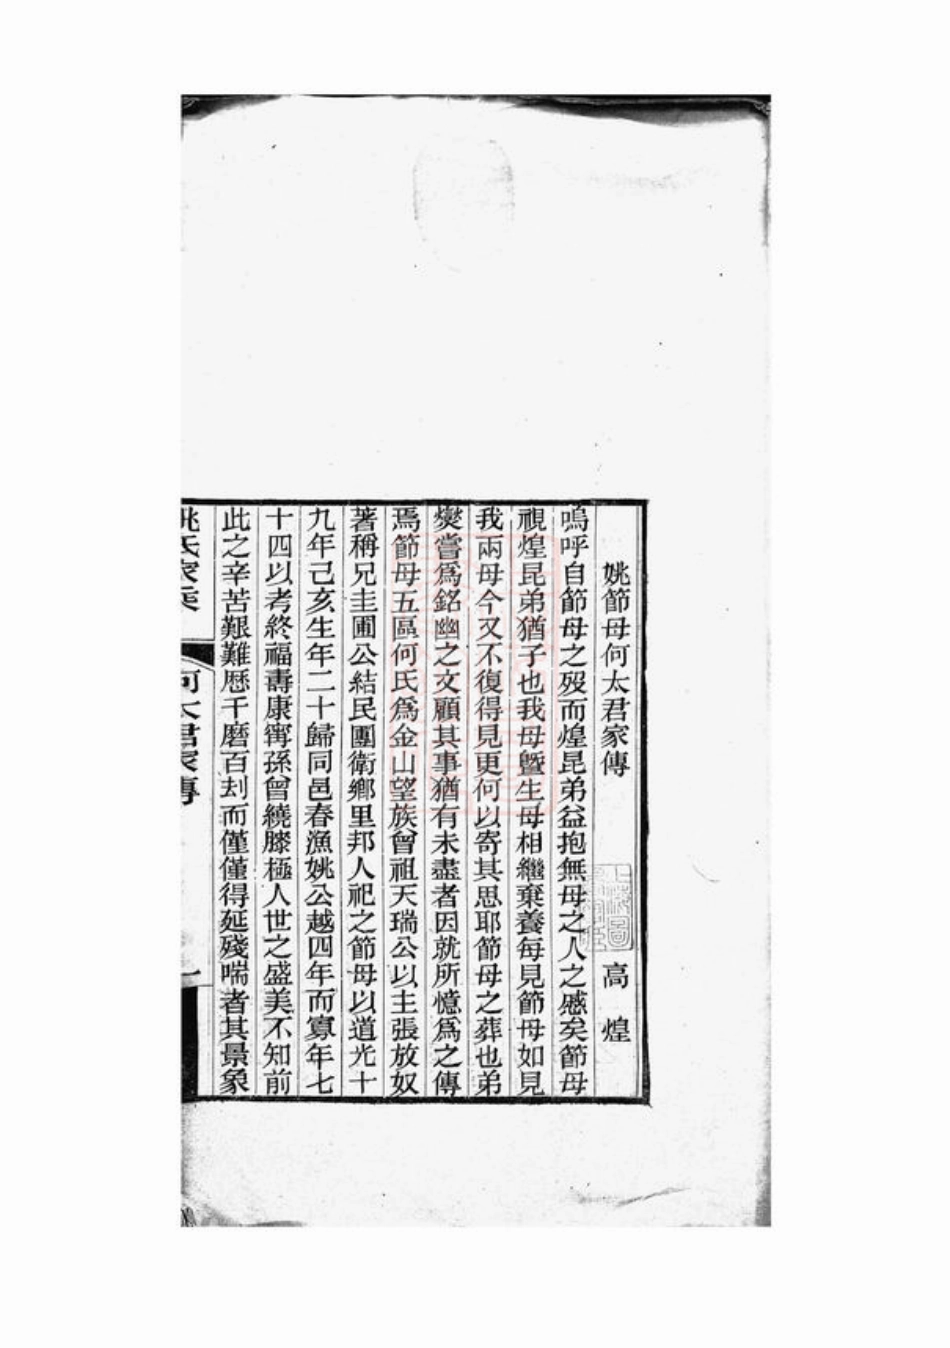 姚節母何太君家傳 高煌
嗚呼自節母之歿而煌昆弟益抱無母之人之慼矣節母
視煌昆弟猶子也我母曁生母相繼棄養每見節母如見
我兩母今又不復得見更何以寄其思耶節母之葬也弟
爕嘗爲銘幽之文顧其事猶有未盡者因就所憶爲之傳
焉節母五區何氏爲金山望族曾祖天瑞公以主張放奴
著稱兄圭圃公結民團衛鄉里邦人祀之節母以道光十
九年己亥生年二十歸同邑春漁姚公越四年而寡年七
十四以考終福壽康寗孫曾繞膝極人世之盛美不知前
此之辛苦艱難厯千磨百刦而僅僅得延殘喘者其景象
姚氏家乘 何太君家傳 一